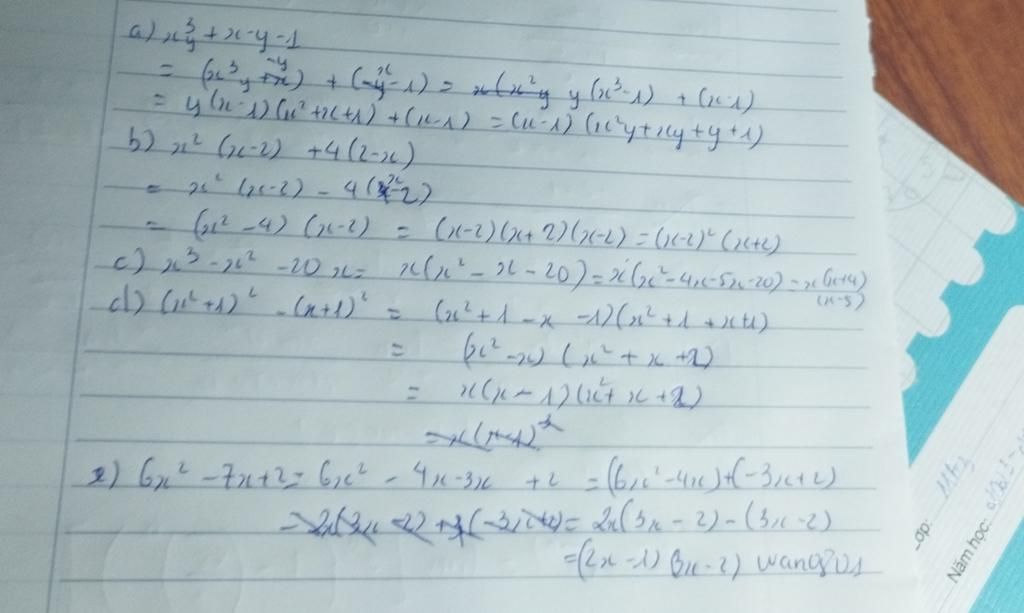 a) x³y + x - y - 1
= (x³y - y) + (x - 1) = y(x³-1) + (x-1)
= y(x-1)(x²+x+1) + (x-1) = (x-1)(x²y+xy+y+1)
b) x² (x-2) + 4(2-x)
= x² (x-2) - 4(x-2)
= (x² - 4) (x-2) = (x-2)(x+2)(x-2) = (x-2)² (x+2)
c) x³ - x² - 20x = x(x² - x - 20) = x(x² - 4x - 5x - 20) = x(x+4)
(x-5)
d) (x²+1)² - (x+1)² = (x²+1 - x - 1)(x²+1 + x+1)
= (x² - x) (x² + x + 2)
= x(x - 1)(x² + x + 2)
e) 6x² - 7x + 2 = 6x² - 4x - 3x + 2 = (6x² - 4x) + (-3x + 2)
= 2x(3x - 2) - (3x - 2)
= (2x - 1)(3x - 2)
Lớp:
Năm học: